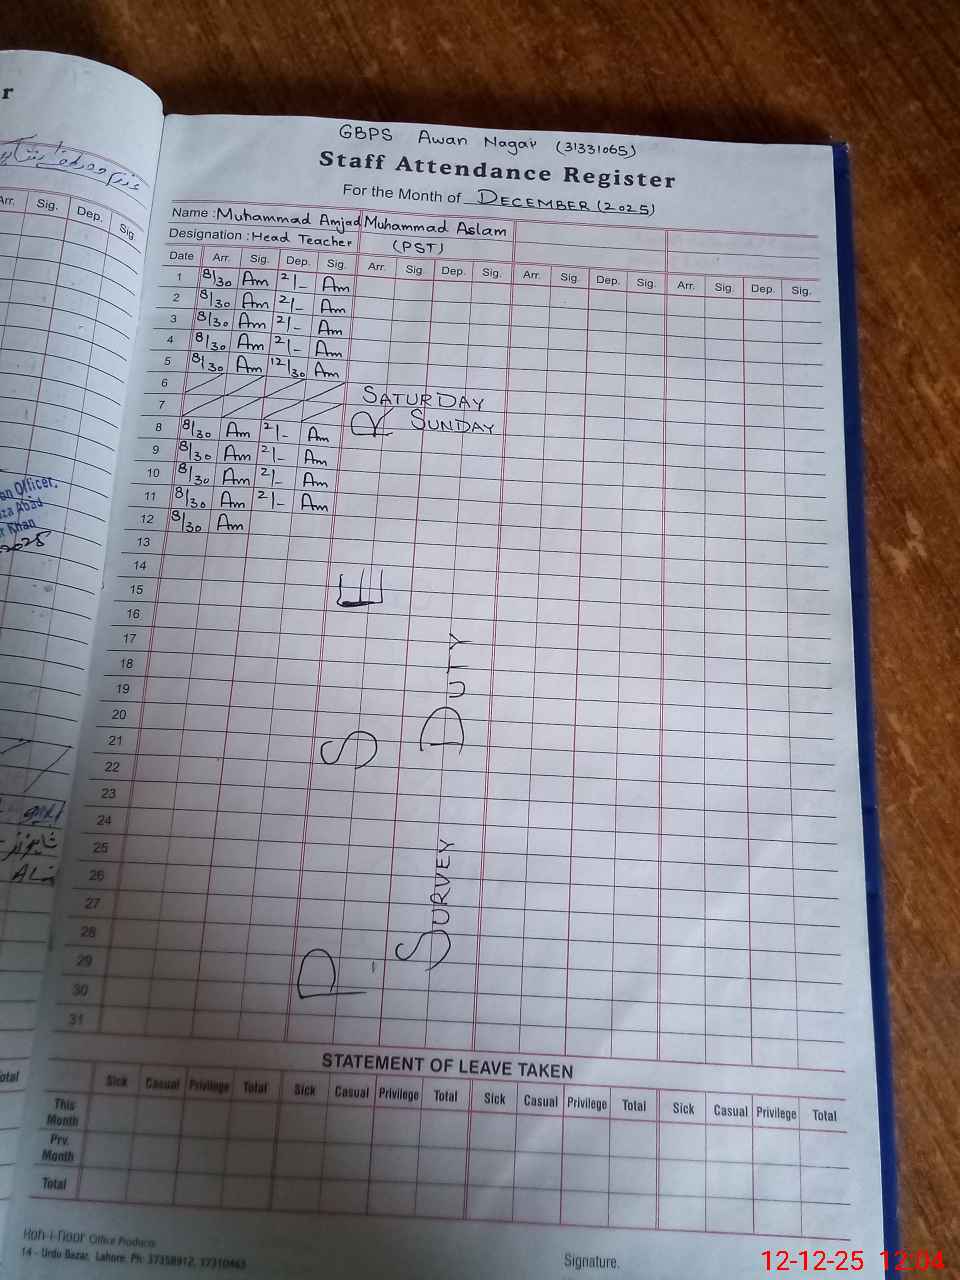 GBPS Awan Nagar (31331065)
Staff Attendance Register
For the Month of DECEMBER (2025)
Name : Muhammad Amjad Muhammad Aslam
Designation : Head Teacher (PST)
Date Arr. Sig. Dep. Sig. Arr. Sig. Dep. Sig. Arr. Sig. Dep. Sig. Arr. Sig. Dep. Sig.
1 8/30 Am 2/- Am
2 8/30 Am 2/- Am
3 8/30 Am 2/- Am
4 8/30 Am 2/- Am
5 8/30 Am 12/30 Am
6 SATURDAY
7 & SUNDAY
8 8/30 Am 2/- Am
9 8/30 Am 2/- Am
10 8/30 Am 2/- Am
11 8/30 Am 2/- Am
12 8/30 Am
13
14
15
16
17
18
19
20
21
22
23
24
25
26
27
28
29
30
31
P S E
SURVEY DUTY
STATEMENT OF LEAVE TAKEN
Sick Casual Privilege Total Sick Casual Privilege Total Sick Casual Privilege Total Sick Casual Privilege Total
This Month
Prv. Month
Total
Koh-i-noor Office Products
14 - Urdu Bazar, Lahore. Ph: 37358912, 37310463
Signature.
r
Arr. Sig. Dep. Sig
an Officer,
za Abad
r Khan
2025
otal
12-12-25 12:04